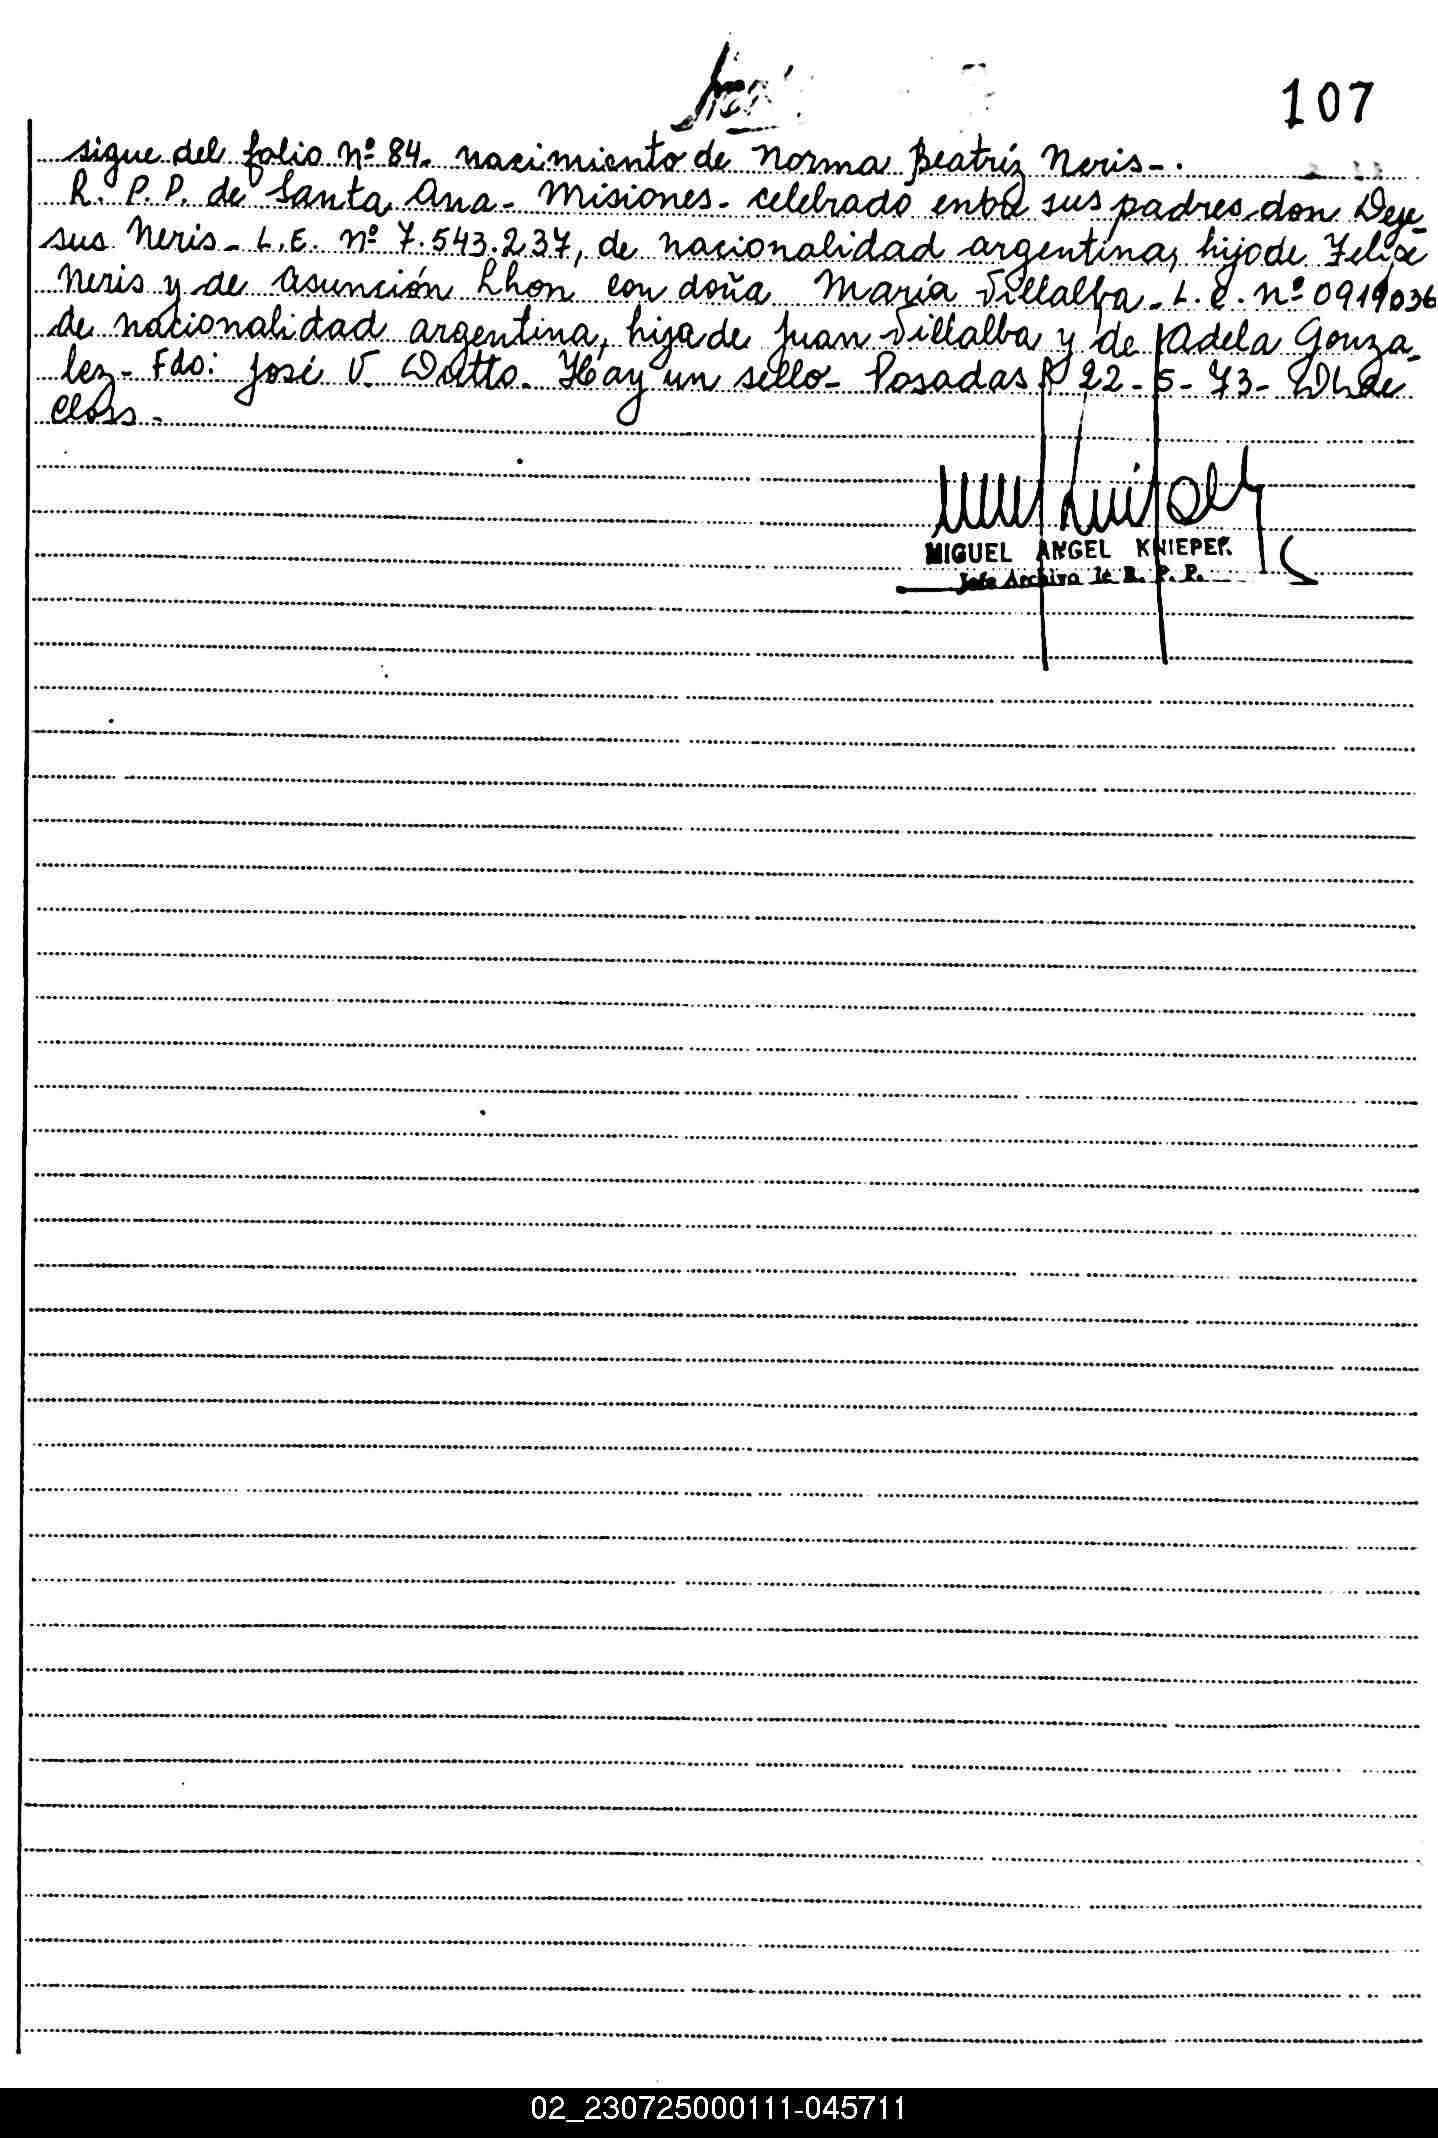 107
sigue del folio Nº 84. nacimiento de Norma Beatríz Neris-.
R. P. P. de Santa Ana - Misiones - celebrado entre sus padres don Deje-
sus Neris - L.E. Nº 7.543.237, de nacionalidad argentina, hijo de Felipe
Neris y de Asunción Lhon con doña María Villalba - L.C. nº 0919036
de nacionalidad argentina, hija de Juan Villalba y de Adela Gonza-
lez - Fdo: José V. Datto. Hay un sello - Posadas 22-5-73-
Closs -
MIGUEL ANGEL KNIEPER
Jefe Archivo de R. P. P.
02_230725000111-045711